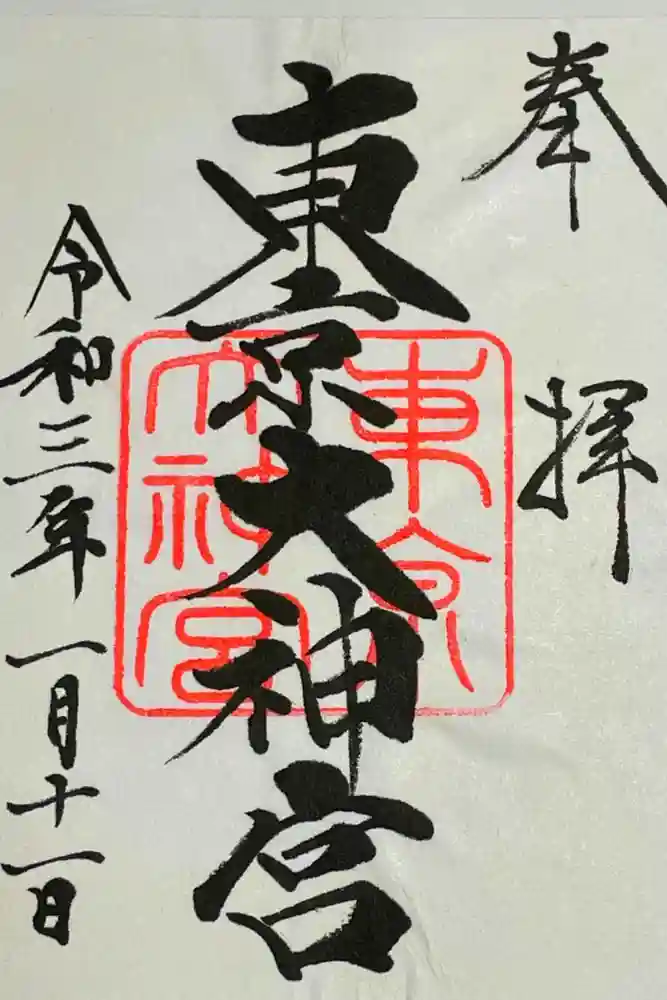 奉拝
東京大神宮
東京
大神宮
令和三年一月十一日